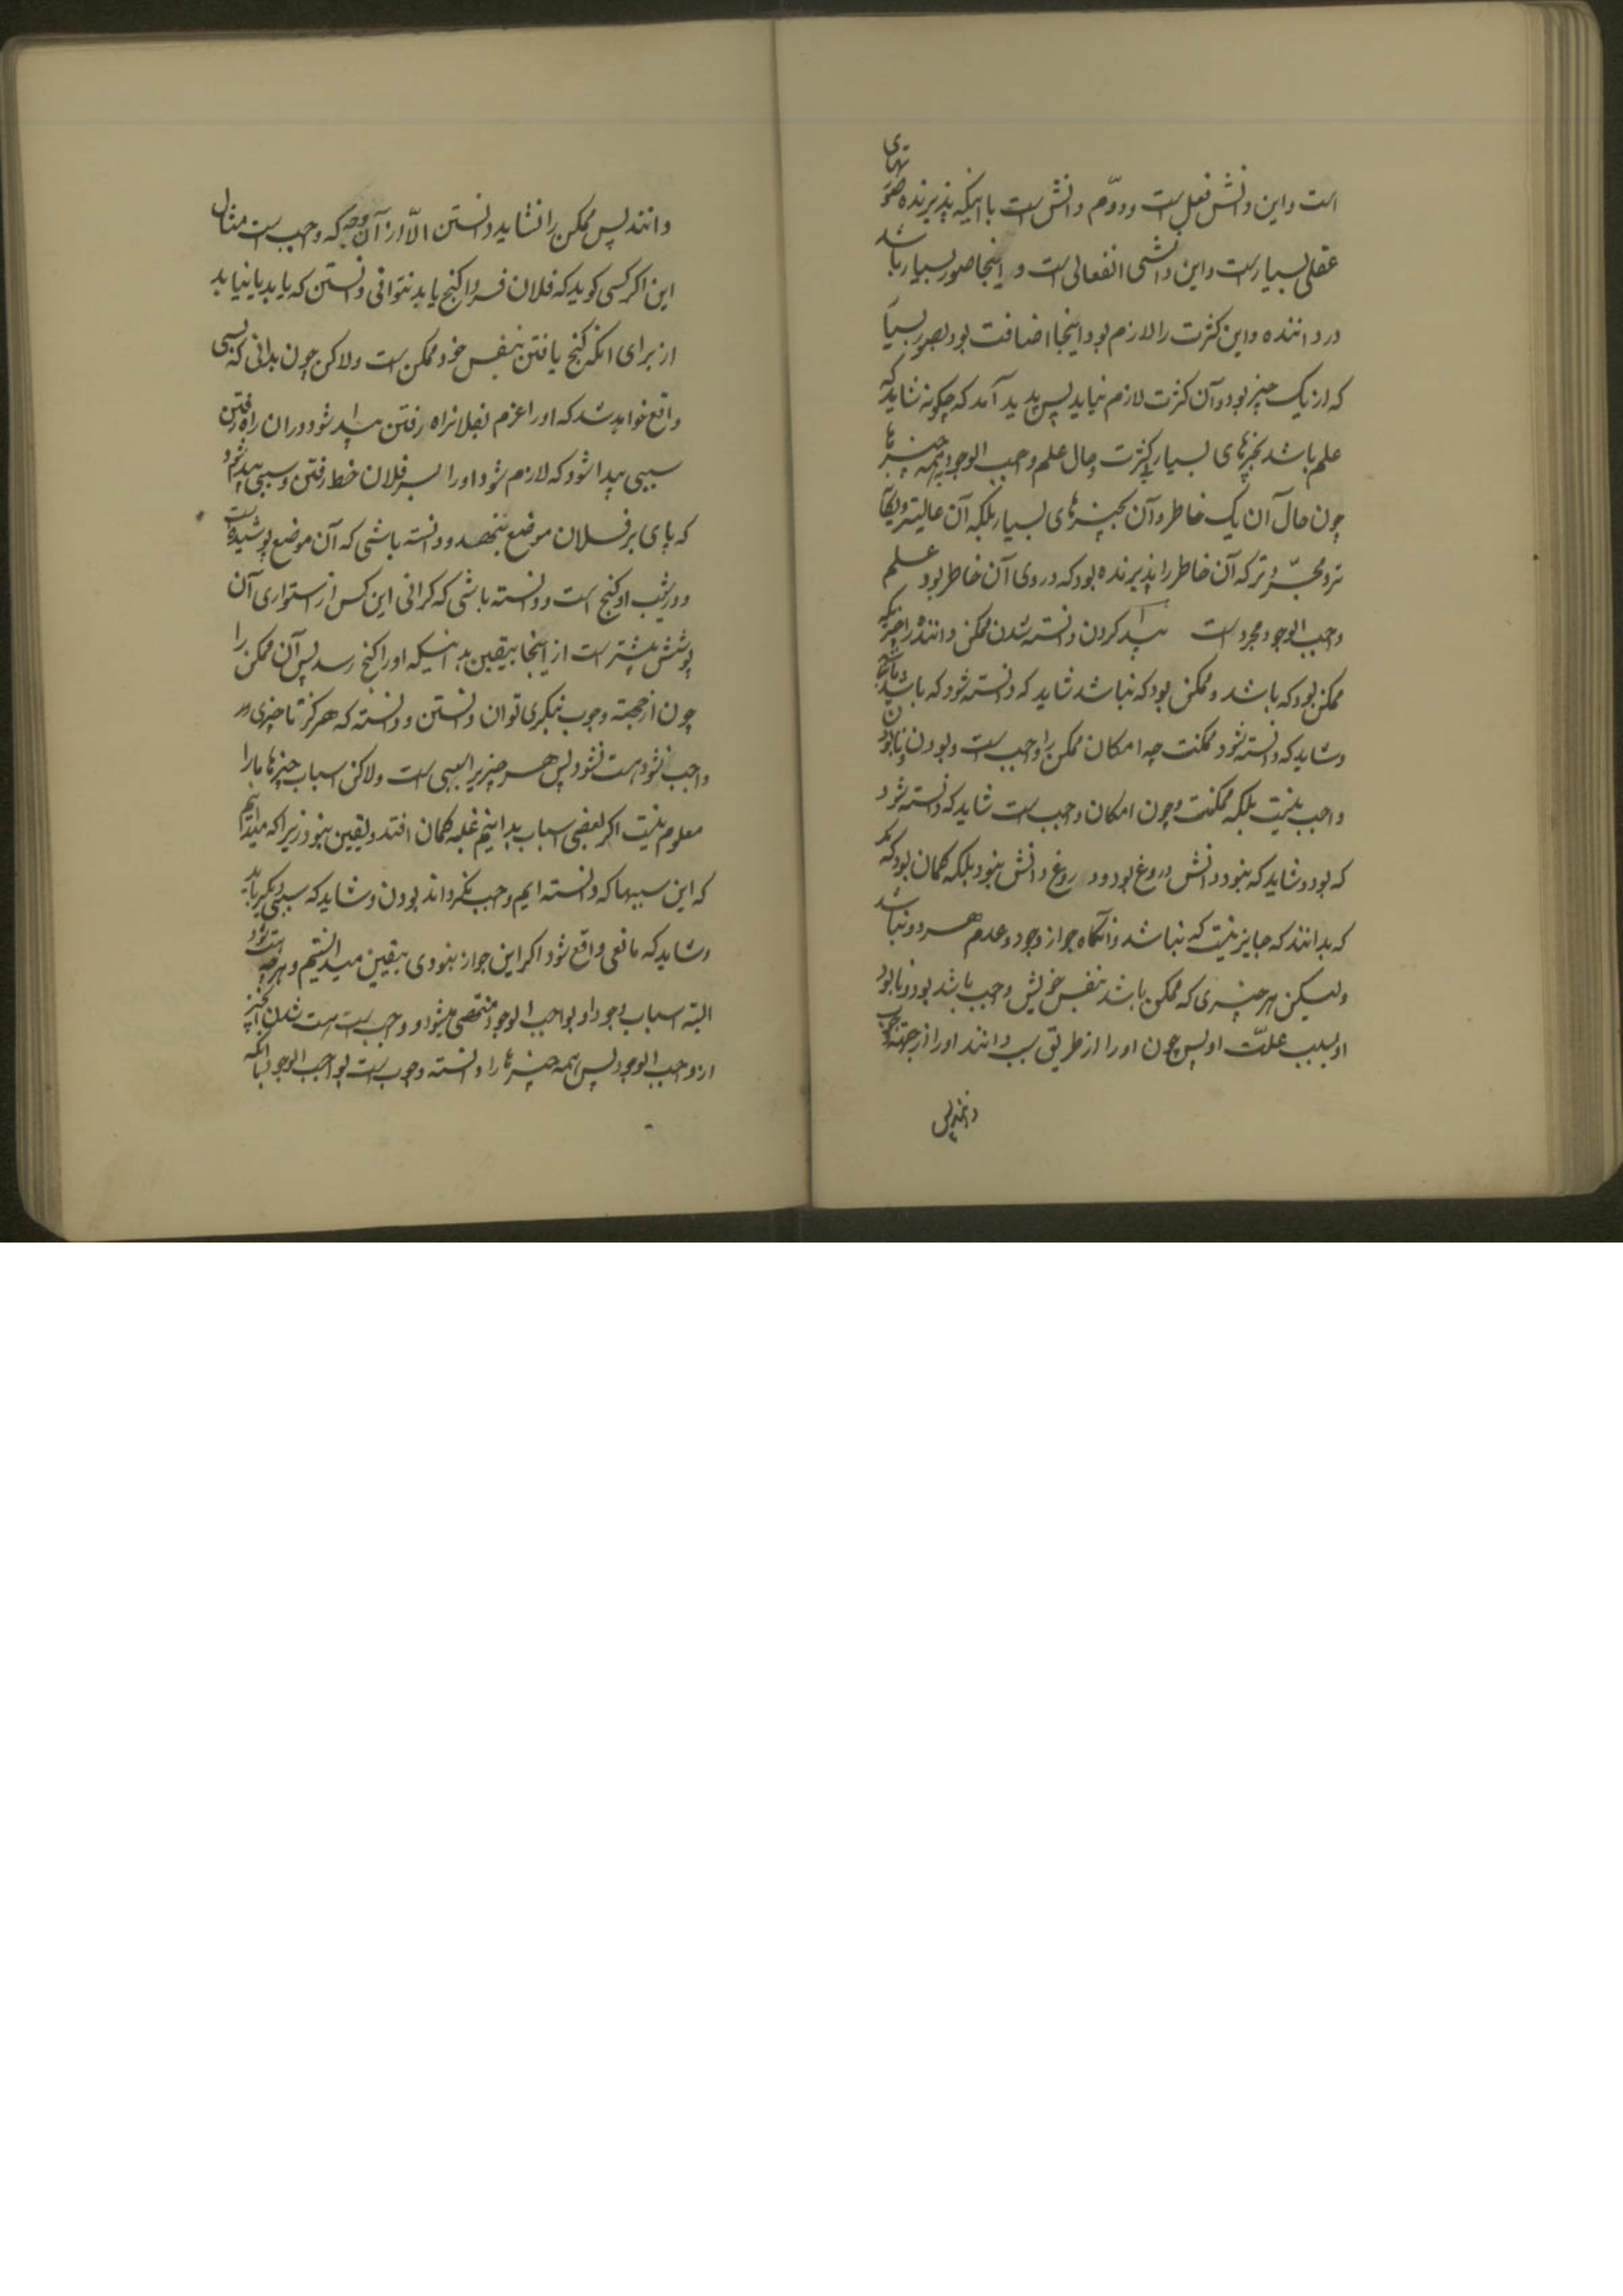 است و این دانش فعلی است و دوّم دانش است با اینکه پذیرنده صورتهای
عقلی بسیار است و این دانشی انفعالی است و اینجا صور بسیار باشد
در داننده و این کثرت را لازم بود و اینجا اضافت بود بصور بسیار
که از یک چیز بود و آن کثرت لازم نیاید پس پدید آمد که چگونه شاید که
علم باشد بچیزهای بسیار بی کثرت و حال علم واجب الوجود بهمه چیزها
چون حال آن یک خاطر و آن بچیزهای بسیار بلکه آن عالیتر و یگانه
تر و مجرّدتر که آن خاطر را پذیرنده بود که در وی آن خاطر بود و علم
واجب الوجود مجرد است پیدا کردن دانسته شدن ممکن داننده را چیزیکه
ممکن بود که باشد و ممکن بود که نباشد نشاید که دانسته شود که باشد یا نباشد
و شاید که دانسته شود ممکنست چه امکان ممکن را واجب است و بودن و نابودن
واجب نیست بلکه ممکنست و چون امکان واجب است شاید که دانسته شود
که بود و شاید که نبود دانش دروغ بود و دروغ دانش نبود بلکه گمان بود مگر
که بدانند که جایز نیست که نباشد و آنگاه جواز وجود و عدم هر دو نباشد
ولیکن هر چیزی که ممکن باشد بنفس خویش واجب باشد بود و نابود
او بسبب علّت او پس چون او را از طریق سبب دانند او را از جهة وجوب
دانند پس
دانند پس ممکن را نشاید دانستن الّا از آن وجه که واجب است مثال
این اگر کسی گوید که فلان فردا گنج یابد نتوانی دانستن که یابد یا نیابد
از برای انکه گنج یافتن بنفس خود ممکن است ولاکن چون بدانی که سببی
واقع خواهد شد که او را عزم بفلان راه رفتن پیدا شود و در ان راه رفتن
سببی پیدا شود که لازم شود او را بسر فلان خط رفتن و سببی پیدا شود
که پای بر فلان موضع بنهد و دانسته باشی که آن موضع پوشیده است
و در شیب او گنج است و دانسته باشی که گرانی این کس از استواری آن
پوشش بیشتر است از اینجا بیقین بدانیکه او را گنج رسد پس آن ممکن را
چون از جهة وجوب بنگری توان دانستن و دانسته که هرگز تا چیزی
واجب نشود هست نشود پس هر چیزیرا سببی است ولاکن اسباب چیزها ما را
معلوم نیست اگر بعضی اسباب بدانیم غلبه گمان افتد و یقین نبود زیرا که میدانیم
که این سببها که دانسته ایم واجب نگرداند بودن و شاید که سببی دیگر باید
و شاید که مانعی واقع شود اگر این جواز نبودی بیقین میدانستیم و هر چه هست شود
البته اسباب وجود او بواجب الوجود منتهی میشود و واجب است هست شدن آنچیز
از واجب الوجود پس همه چیزها را دانسته وجوب است بواجب الوجود بانکه